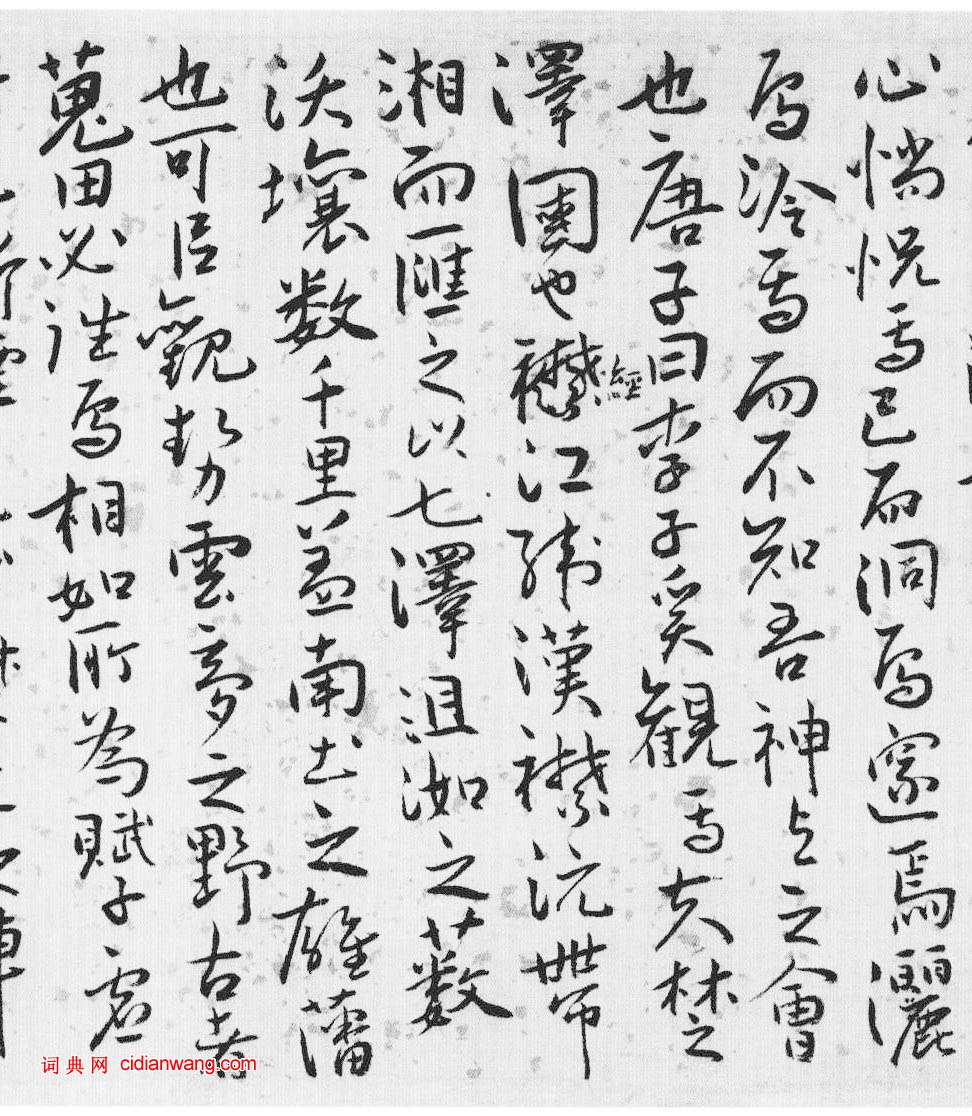 心惝怳焉已而洞焉邃焉灑
焉泠焉而不知吾神与之會
也唐子曰李子奚觀焉夫楚之
澤國也襟經江緯漢襟沅帶
湘而匯之以七澤沮洳之藪
沃壤数千里盖南土之雄藩
也可㠯觀勢雲夢之野古者
蒐田必往焉相如所為賦子虛
词典网 cidianwang.com